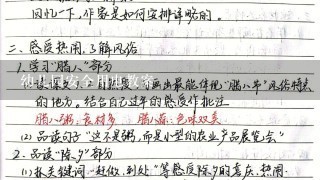 回忆一下,作家是如何安排详略的。
二、感受热闹,了解风俗
1. 学习"腊八"部分
出最能体现"腊八节"风俗特点
的地方。结合自己过年的感受作批注
腊八粥:食材多 腊八蒜:色味双美
(2) 品读句子"这不是粥,而是小型的农业产品展览会"
2. 品读"除夕"部分
(1) 抓关键词"赶做,到处"等感受除夕的喜庆、热闹